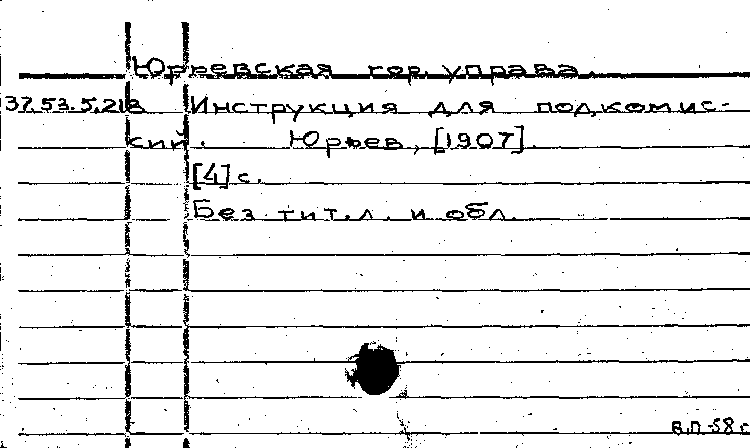 Юрьевская гор. управа.
37.53.5.213 Инструкция для подкомис-
сий. Юрьев, [1907].
[4] с.
Без тит. л. и обл.
В.П.-58 г